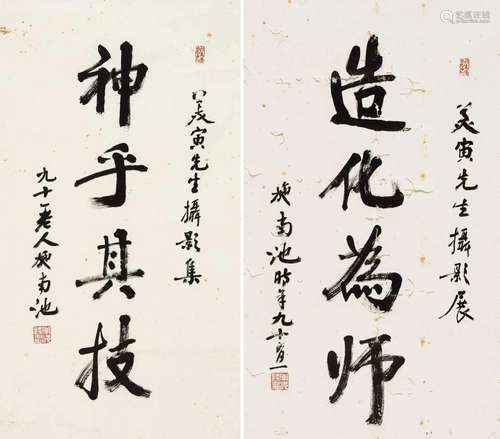 美寅先生攝影展
造化為师
施南池时年九十有一
美寅先生攝影集
神乎其技
九十一老人施南池